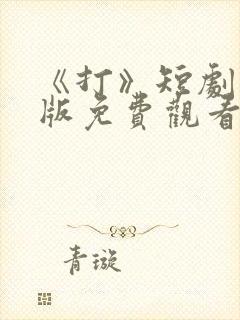 《打》短劇
版免費觀看
青璇